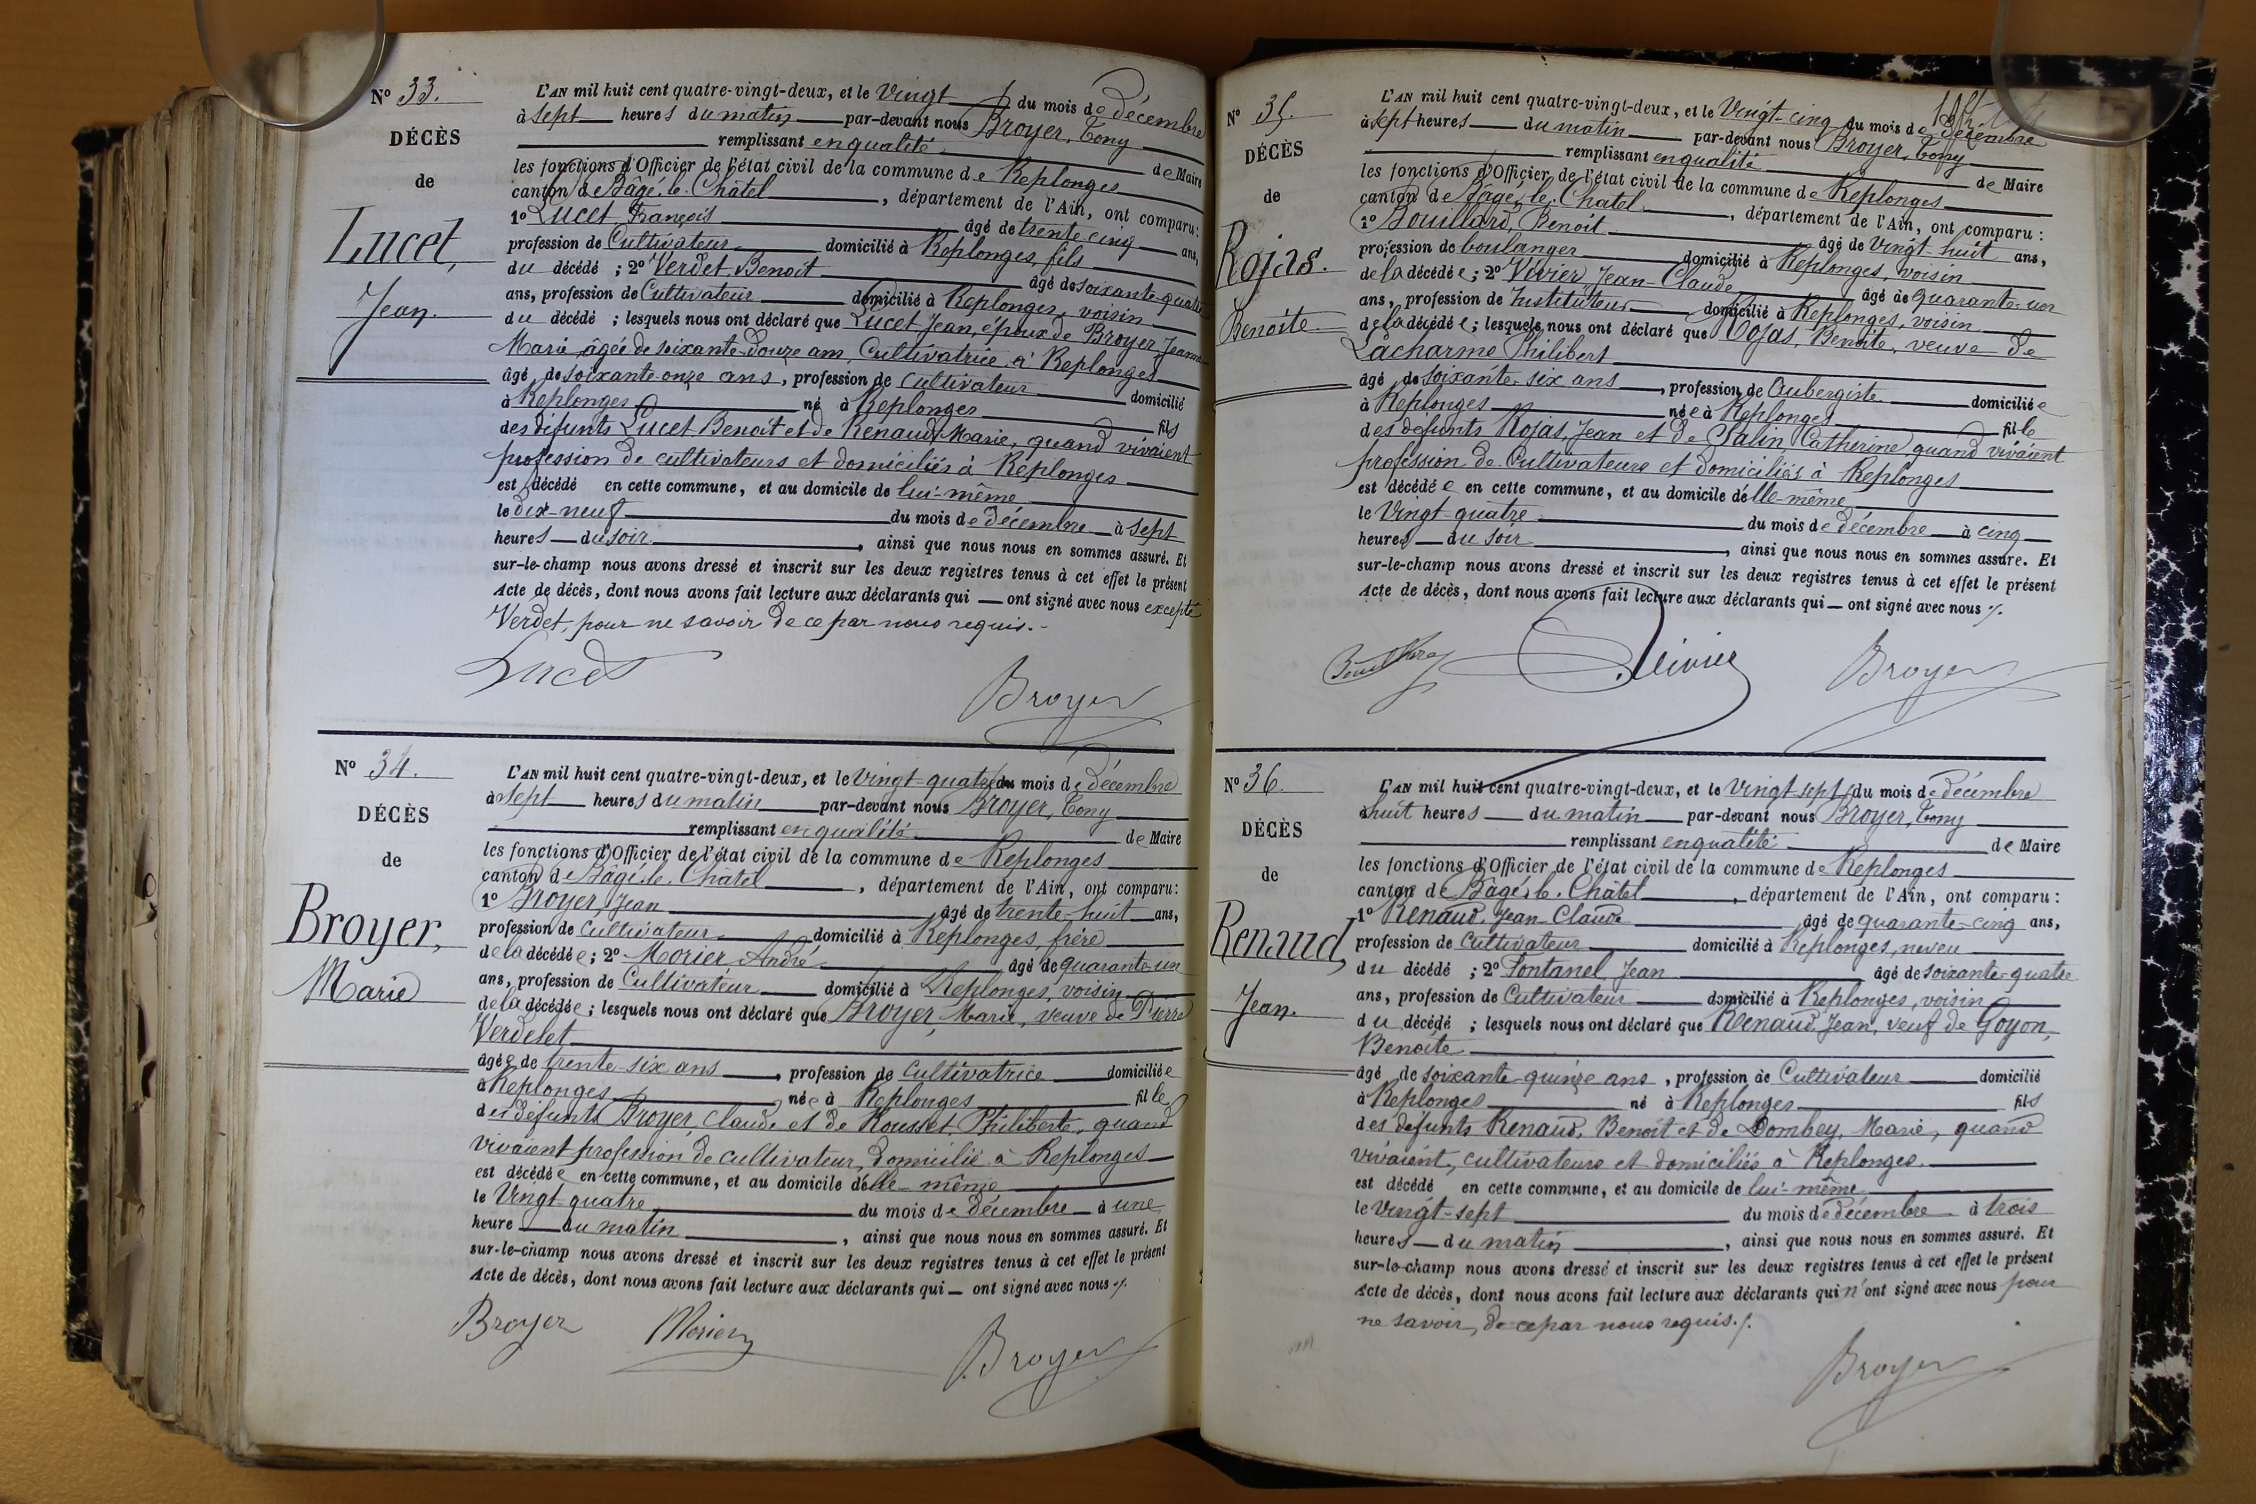 N° 33.
DÉCÈS
de
Lucet,
Jean.
L'AN mil huit cent quatre-vingt-deux, et le Vingt du mois de décembre
à sept heures du matin par-devant nous Broyer, Tony
remplissant en qualité de Maire
les fonctions d'Officier de l'état civil de la commune de Replonges
canton de Bâgé-le-Châtel, département de l'Ain, ont comparu:
1° Lucet François âgé de trente cinq ans,
profession de Cultivateur domicilié à Replonges, fils
du décédé ; 2° Verdet, Benoit âgé de soixante-quatre
ans, profession de Cultivateur domicilié à Replonges, voisin
du décédé ; lesquels nous ont déclaré que Lucet Jean, époux de Broyer Jeanne
Marie, âgée de soixante-douze ans, Cultivatrice à Replonges
âgé de soixante-onze ans, profession de cultivateur domicilié
à Replonges né à Replonges fils
des défunts Lucet Benoit et de Renaud Marie, quand vivaient
profession de cultivateurs et domiciliés à Replonges
est décédé en cette commune, et au domicile de lui-même
le dix-neuf du mois de décembre à sept
heures du soir, ainsi que nous nous en sommes assuré. Et
sur-le-champ nous avons dressé et inscrit sur les deux registres tenus à cet effet le présent
Acte de décès, dont nous avons fait lecture aux déclarants qui — ont signé avec nous excepté
Verdet, pour ne savoir de ce par nous requis.-
Lucet
Broyer
N° 34.
DÉCÈS
de
Broyer,
Marie
L'AN mil huit cent quatre-vingt-deux, et le Vingt-quatre du mois de décembre
à sept heures du matin par-devant nous Broyer, Tony
remplissant en qualité de Maire
les fonctions d'Officier de l'état civil de la commune de Replonges
canton de Bâgé-le-Châtel, département de l'Ain, ont comparu:
1° Broyer, Jean âgé de trente-huit ans,
profession de cultivateur domicilié à Replonges, frère
de la décédée ; 2° Morier André âgé de quarante-un
ans, profession de Cultivateur domicilié à Replonges, voisin
de la décédée ; lesquels nous ont déclaré que Broyer, Marie, veuve de Pierre
Verdelet
âgée de trente-six ans, profession de Cultivatrice domiciliée
à Replonges née à Replonges fille
des défunts Broyer, Claude et de Rousset, Philiberte, quand
vivaient profession de cultivateur, domicilié à Replonges
est décédée en cette commune, et au domicile d'elle-même
le Vingt-quatre du mois de décembre à une
heure du matin, ainsi que nous nous en sommes assuré. Et
sur-le-champ nous avons dressé et inscrit sur les deux registres tenus à cet effet le présent
Acte de décès, dont nous avons fait lecture aux déclarants qui — ont signé avec nous ./.
Broyer Morier
Broyer
N° 35.
DÉCÈS
de
Rojas.
Benoite
L'AN mil huit cent quatre-vingt-deux, et le Vingt-cinq du mois de décembre
à sept heures du matin par-devant nous Broyer, Tony
remplissant en qualité de Maire
les fonctions d'Officier de l'état civil de la commune de Replonges
canton de Bâgé-le-Châtel, département de l'Ain, ont comparu :
1° Bouillard, Benoit âgé de vingt-huit ans,
profession de boulanger domicilié à Replonges, voisin
de la décédée ; 2° Vivier, Jean-Claude âgé de quarante-un
ans, profession de Instituteur domicilié à Replonges, voisin
de la décédée ; lesquels nous ont déclaré que Rojas, Benoite, veuve de
Lacharme Philibert
âgé de soixante-six ans, profession de Aubergiste domiciliée
à Replonges née à Replonges fille
des défunts Rojas, Jean et de Galin, Catherine, quand vivaient
profession de Cultivateurs et domiciliés à Replonges
est décédée en cette commune, et au domicile d'elle-même
le Vingt-quatre du mois de décembre à cinq
heures du soir, ainsi que nous nous en sommes assuré. Et
sur-le-champ nous avons dressé et inscrit sur les deux registres tenus à cet effet le présent
Acte de décès, dont nous avons fait lecture aux déclarants qui — ont signé avec nous ./.
Vivier Broyer
N° 36.
DÉCÈS
de
Renaud,
Jean.
L'AN mil huit cent quatre-vingt-deux, et le Vingt sept du mois de décembre
à huit heures du matin par-devant nous Broyer, Tony
remplissant en qualité de Maire
les fonctions d'Officier de l'état civil de la commune de Replonges
canton de Bâgé-le-Châtel, département de l'Ain, ont comparu :
1° Renaud, Jean Claude âgé de quarante-cinq ans,
profession de Cultivateur domicilié à Replonges, neveu
du décédé ; 2° Fontanel Jean âgé de soixante-quatre
ans, profession de Cultivateur domicilié à Replonges, voisin
du décédé ; lesquels nous ont déclaré que Renaud, Jean, veuf de Goyon,
Benoite
âgé de soixante-quinze ans, profession de Cultivateur domicilié
à Replonges né à Replonges fils
des défunts Renaud, Benoit et de Dombey, Marie, quand
vivaient, cultivateurs et domiciliés à Replonges.
est décédé en cette commune, et au domicile de lui-même
le vingt-sept du mois de décembre à trois
heures du matin, ainsi que nous nous en sommes assuré. Et
sur-le-champ nous avons dressé et inscrit sur les deux registres tenus à cet effet le présent
Acte de décès, dont nous avons fait lecture aux déclarants qui n'ont signé avec nous pour
ne savoir, de ce par nous requis ./.
Broyer